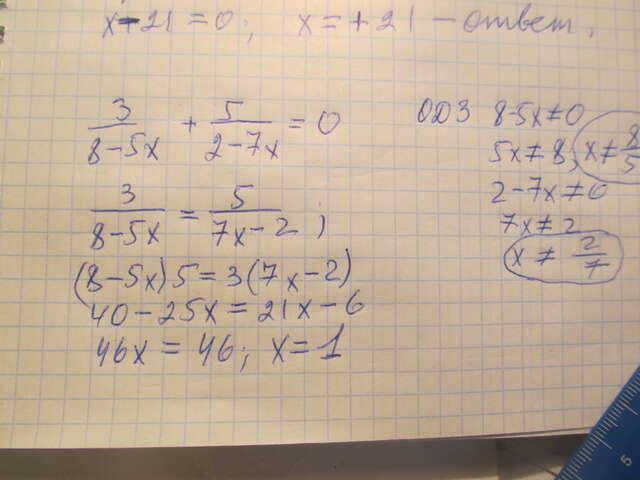 x-21=0; x=+21 - ответ.
3/(8-5x) + 5/(2-7x) = 0
3/(8-5x) = 5/(7x-2);
(8-5x)5=3(7x-2)
40-25x=21x-6
46x=46; x=1
ОДЗ 8-5x≠0
5x≠8; x≠8/5
2-7x≠0
7x≠2
x≠2/7
5